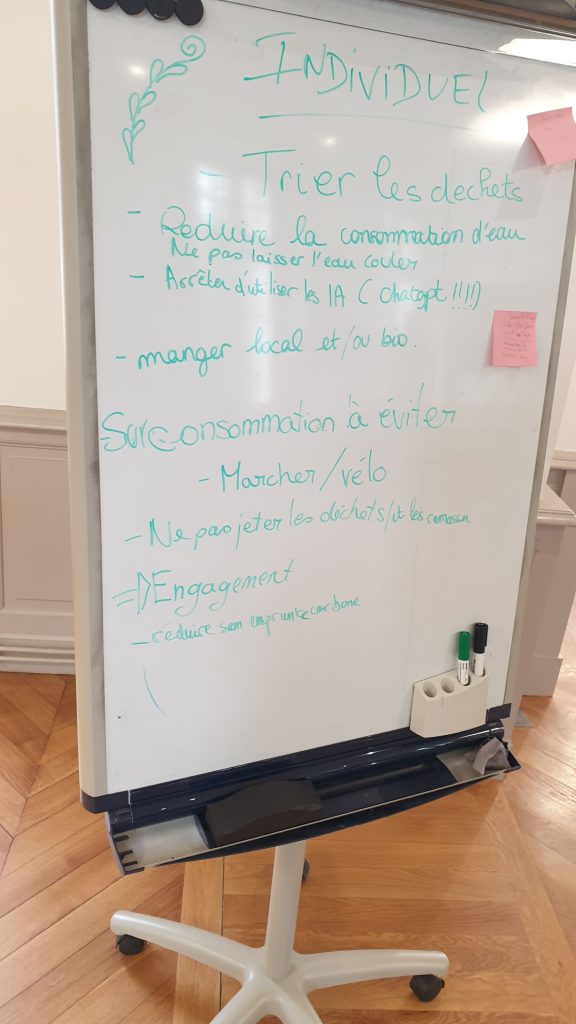 INDIVIDUEL
- Trier les dechets
- Reduire la consommation d'eau
Ne pas laisser l'eau couler
- Arrêter d'utiliser les IA ( Chatgpt !!!!)
- manger local et/ou bio.
- Surconsommation à éviter
- Marcher/vélo
- Ne pas jeter les déchets/et les ramasser
=> Engagement
- réduire son emprunte carbone